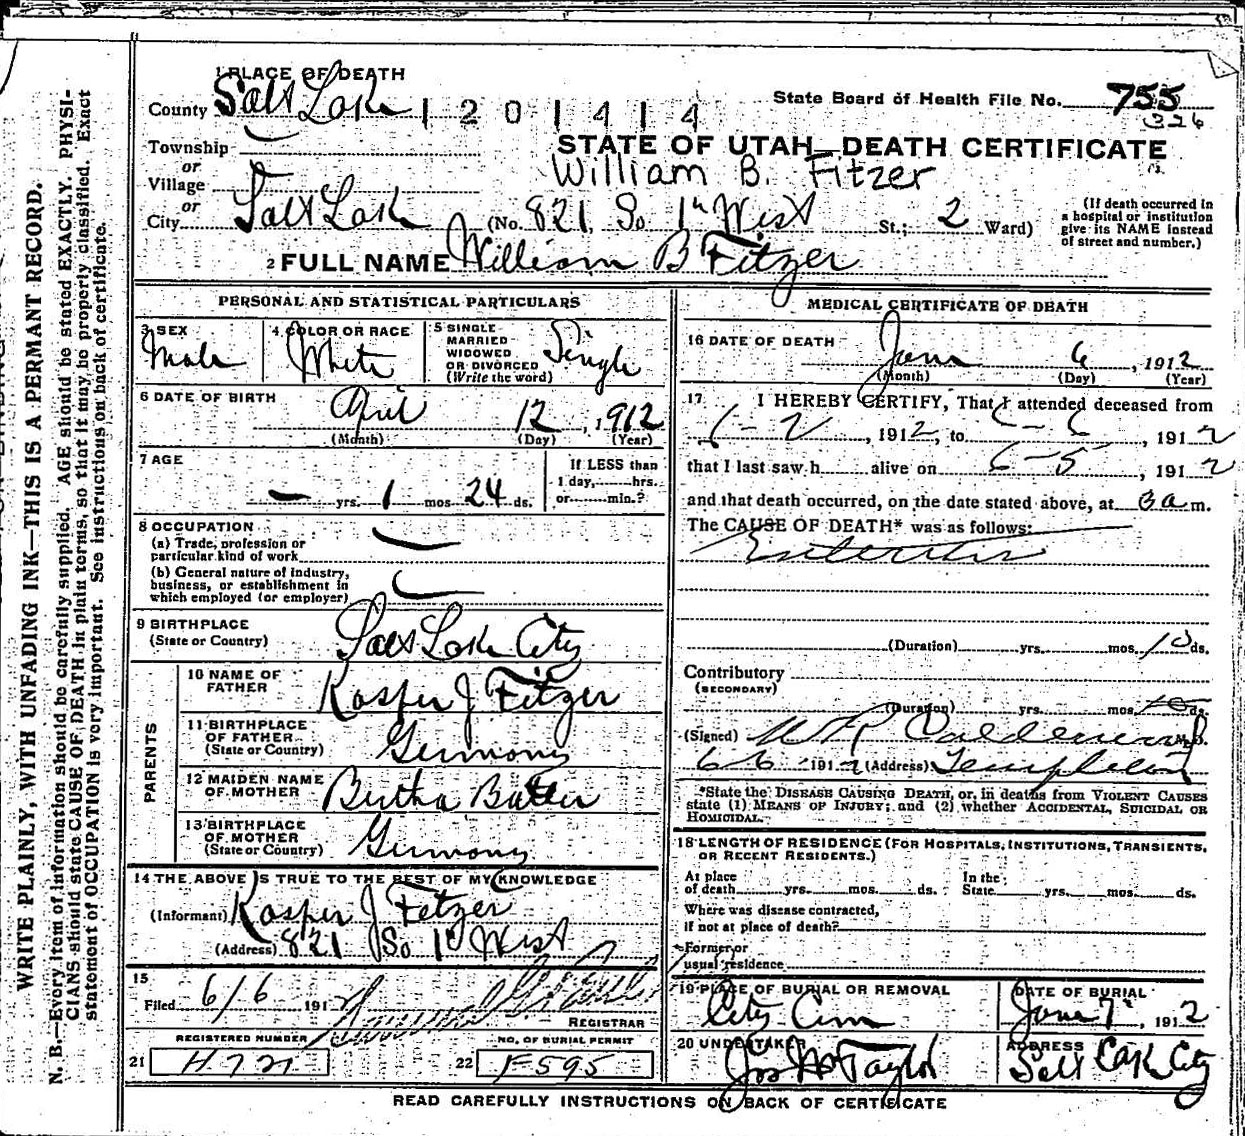 1 PLACE OF DEATH
County Salt Lake 1201414
State Board of Health File No. 755
326
Township
or
Village
or
City Salt Lake (No. 821 So 1st West St.; 2 Ward)
STATE OF UTAH—DEATH CERTIFICATE
William B. Fitzer
(If death occurred in
a hospital or institution
give its NAME instead
of street and number.)
2 FULL NAME William B Fitzer
PERSONAL AND STATISTICAL PARTICULARS
3 SEX
Male
4 COLOR OR RACE
White
5 SINGLE
MARRIED
WIDOWED
OR DIVORCED
(Write the word)
Single
6 DATE OF BIRTH
April 12, 1912
(Month) (Day) (Year)
7 AGE
— yrs. 1 mos. 24 ds.
If LESS than
1 day, hrs.
or min.?
8 OCCUPATION
(a) Trade, profession or
particular kind of work
(b) General nature of industry,
business, or establishment in
which employed (or employer)
9 BIRTHPLACE
(State or Country)
Salt Lake City
PARENTS
10 NAME OF
FATHER
Kasper J Fitzer
11 BIRTHPLACE
OF FATHER
(State or Country)
Germany
12 MAIDEN NAME
OF MOTHER
Bertha
13 BIRTHPLACE
OF MOTHER
(State or Country)
Germany
14 THE ABOVE IS TRUE TO THE BEST OF MY KNOWLEDGE
(Informant) Kasper J Fetzer
(Address) 821 So 1st West
15
Filed 6/6 1912
REGISTRAR
REGISTERED NUMBER
21 H721
NO. OF BURIAL PERMIT
22 F595
MEDICAL CERTIFICATE OF DEATH
16 DATE OF DEATH
June 6, 1912
(Month) (Day) (Year)
17 I HEREBY CERTIFY, That I attended deceased from
6-2, 1912, to 6-6, 1912
that I last saw h alive on 6-5, 1912
and that death occurred, on the date stated above, at 3 a m.
The CAUSE OF DEATH* was as follows:
Enteritis
(Duration) yrs. mos. 10 ds.
Contributory
(SECONDARY)
(Duration) yrs. mos. ds.
(Signed) W R Calderwood M.D.
6 6 1912 (Address) Templeton
*State the DISEASE CAUSING DEATH, or, in deaths from VIOLENT CAUSES
state (1) MEANS OF INJURY; and (2) whether ACCIDENTAL, SUICIDAL OR
HOMICIDAL.
18 LENGTH OF RESIDENCE (FOR HOSPITALS, INSTITUTIONS, TRANSIENTS,
OR RECENT RESIDENTS.)
At place
of death yrs. mos. ds.
In the
State yrs. mos. ds.
Where was disease contracted,
if not at place of death?
Former or
usual residence
19 PLACE OF BURIAL OR REMOVAL
City Cem
DATE OF BURIAL
June 7th, 1912
20 UNDERTAKER
Jos Wm Taylor
ADDRESS
Salt Lake City
READ CAREFULLY INSTRUCTIONS ON BACK OF CERTIFICATE
WRITE PLAINLY, WITH UNFADING INK—THIS IS A PERMANT RECORD.
N. B.—Every item of information should be carefully supplied. AGE should be stated EXACTLY. PHYSI-
CIANS should state CAUSE OF DEATH in plain terms, so that it may be properly classified. Exact
statement of OCCUPATION is very important. See instructions on back of certificate.